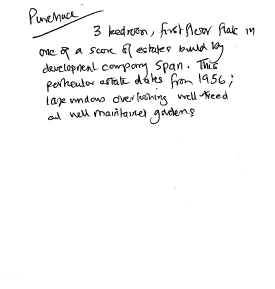 Purchase
3 bedroom, first floor flat in
one of a score of estates build by
development company Span. This
particular estate dates from 1956;
large windows overlooking well-treed
and well maintained gardens